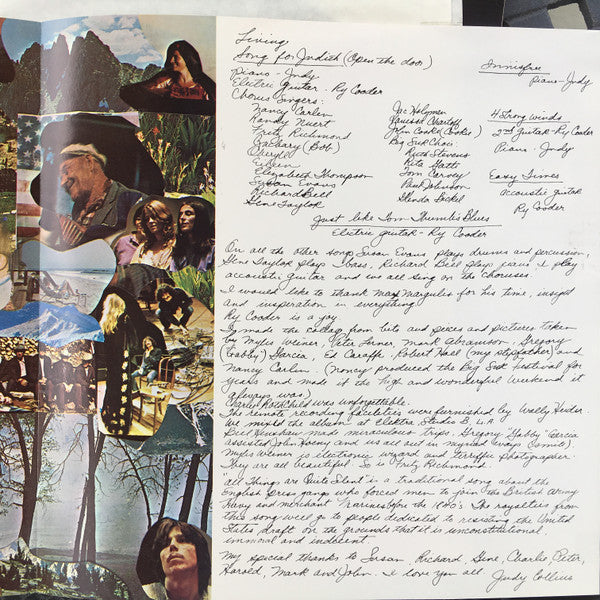 Living:
Song for Judith (Open the door)
Piano - Judy
Electric Guitar - Ry Cooder
Chorus Singers:
Nancy Carlen
Randy Nauert
Fritz Richmond
Zachary (Bob)
Cheryll
Eileen
Elizabeth Thompson
Susan Evans
Richard Bell
Gene Taylor
Joe Holzman
Vanessa
John Cooke (Cookie)
Big Sur Choir:
Ruth Stevens
Rita
Tom Carvey
Paul Johnson
Glenda
Innisfree
Piano - Judy
4 Strong Winds
2nd guitar - Ry Cooder
Piano - Judy
Easy Times
acoustic guitar
Ry Cooder
Just like Tom Thumb's Blues
Electric guitar - Ry Cooder
On all the other songs Susan Evans plays drums and percussion,
Gene Taylor plays bass, Richard Bell plays piano. I play
acoustic guitar and we all sing on the choruses.
I would like to thank Max Margulis for his time, insight
and inspiration in everything.
Ry Cooder is a joy.
I made the collage from bits and pieces and pictures taken
by Myles Weiner, Peter, Mark Abramson, Gregory
(Gabby) Garcia, Ed Caraeff, Robert Hall (my stepfather) and
Nancy Carlen (Nancy produced the Big Sur Festival for
years and made it the high and wonderful weekend it
always was)
Charles Rothchild was unforgettable.
The remote recording facilities were furnished by Wally Heider.
We mixed the album at Elektra Studios B, L.A.
Bill made miraculous trips. Gregory "Gabby" Garcia
assisted John Haeny and is all out in myriad ways (
Myles Weiner is electronic wizard and terrific photographer.
They are all beautiful. So is Fritz Richmond.
"All Things are Quite Silent" is a traditional song about the
English press gangs who forced men to join the British Army
Navy and merchant Marines for the 1800's. The royalties from
this song will go to people dedicated to resisting the United
States draft on the grounds that it is unconstitutional
immoral and indecent
My special thanks to Susan, Richard, Gene, Charlie, Peter,
Harold, Mark and John. I love you all. Judy Collins